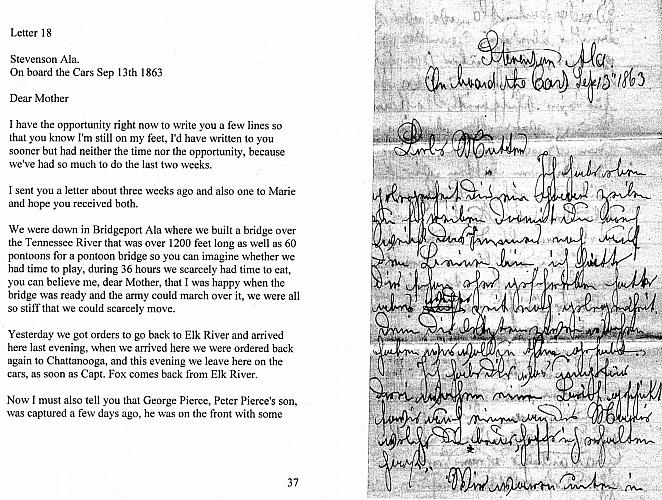 Letter 18
Stevenson Ala.
On board the Cars Sep 13th 1863
Dear Mother
I have the opportunity right now to write you a few lines so
that you know I'm still on my feet, I'd have written to you
sooner but had neither the time nor the opportunity, because
we've had so much to do the last two weeks.
I sent you a letter about three weeks ago and also one to Marie
and hope you received both.
We were down in Bridgeport Ala where we built a bridge over
the Tennessee River that was over 1200 feet long as well as 60
pontoons for a pontoon bridge so you can imagine whether we
had time to play, during 36 hours we scarcely had time to eat,
you can believe me, dear Mother, that I was happy when the
bridge was ready and the army could march over it, we were all
so stiff that we could scarcely move.
Yesterday we got orders to go back to Elk River and arrived
here last evening, when we arrived here we were ordered back
again to Chattanooga, and this evening we leave here on the
cars, as soon as Capt. Fox comes back from Elk River.
Now I must also tell you that George Pierce, Peter Pierce's son,
was captured a few days ago, he was on the front with some
37
Stevenson Ala
On board the Cars Sep 13" 1863
Liebe Mutter
Ich habe eben
gelegenheit dir ein zeilen
zu schreiben damit du auch
immer noch auf
bin ich hätte
dir schon eher geschrieben hatte
aber zeit noch gelegenheit
denn die letzten zwei wochen
haben wir
Ich habe dir
wochen einen Brief geschickt
einen an Marie
welche du erhalten
hast.
Wir waren unten in